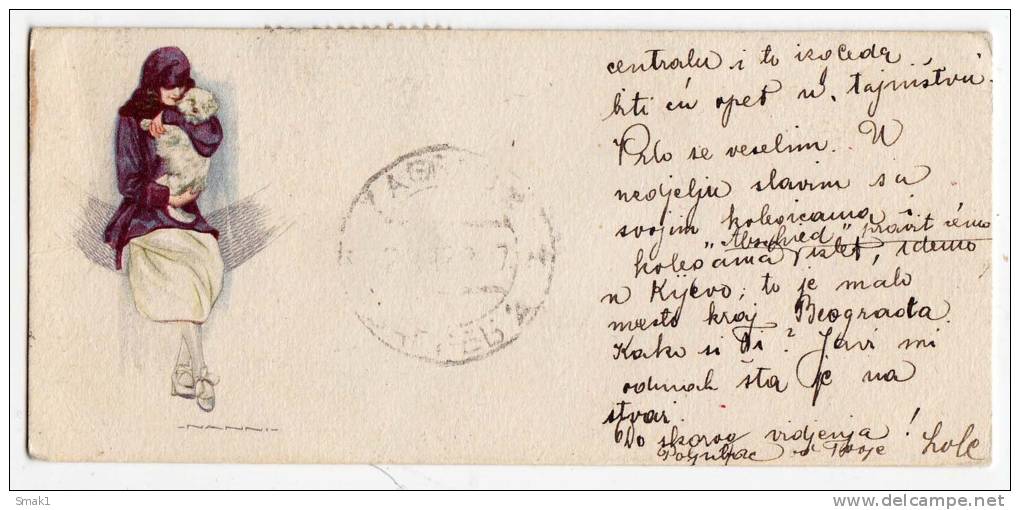 centralu i to izgleda
biti ću opet u tajništvu.
Vrlo se veselim. U
nedjelju slavim sa
svojim kolegicama i
"Abschied" pravit ćemo
kolegama izlet, idemo
u Kijevo; to je malo
mesto kraj Beograda.
Kako si Ti? Javi mi
odmah šta je na
stvari.
Do skorog vidjenja!
Poljubac od Tvoje
ZAGREB
ЗАГРЕБ
-NANNI-
Smak1
www.delcampe.net